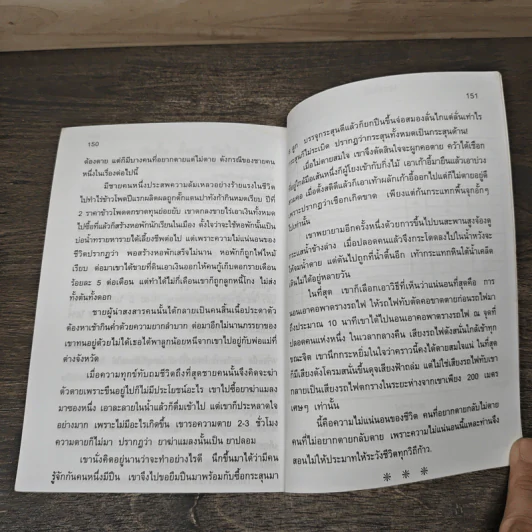 150
ต้องตาย แต่ก็มีบางคนที่อยากตายแต่ไม่ตาย ดังกรณีของชายคน
หนึ่งในเรื่องต่อไปนี้
มีชายคนหนึ่งประสพความล้มเหลวอย่างร้ายแรงในชีวิต
ไปทำไร่ข้าวโพดปีแรกผลิตผลถูกตั๊กแตนปาทังก้ากินหมดเรียบ ปีที่
2 ราคาข้าวโพดตกขาดทุนย่อยยับ เขาตกลงขายไร่เอาเงินทั้งหมด
ไปซื้อที่แล้วก็สร้างหอพักนักเรียนในเมือง ตั้งใจว่าจะใช้หอพักนั้นเป็น
บ่อน้ำทรายหารายได้เลี้ยงชีพต่อไป แต่เพราะความไม่แน่นอนของ
ชีวิตปรากฏว่า พอสร้างหอพักเสร็จไม่นาน หอพักก็ถูกไฟไหม้
เรียบ ต่อมาเขาได้ขายที่ดินเอาเงินออกให้คนกู้เก็บดอกรายเดือน
ร้อยละ 5 ต่อเดือน แต่ทำได้ไม่กี่เดือนเขาก็ถูกลูกหนี้โกง ไม่ส่ง
ทั้งต้นทั้งดอก
ชายผู้น่าสงสารคนนั้นได้กลายเป็นคนสิ้นเนื้อประดาตัว
ต้องหาเช้ากินค่ำด้วยความยากลำบาก ต่อมาอีกไม่นานภรรยาของ
เขาทนอยู่ด้วยไม่ได้เธอได้พาลูกน้อยหนีจากเขาไปอยู่กับพ่อแม่ที่
ต่างจังหวัด
เมื่อความทุกข์ทับถมชีวิตถึงที่สุดชายคนนั้นจึงคิดจะฆ่า
ตัวตายเพราะขืนอยู่ไปก็ไม่มีประโยชน์อะไร เขาไปซื้อยาฆ่าแมลง
มาซองหนึ่ง เอาละลายในน้ำแล้วก็ดื่มเข้าไป แต่เขาก็ประหลาดใจ
อย่างมาก เพราะไม่มีอะไรเกิดขึ้น เขารอความตาย 2-3 ชั่วโมง
ความตายก็ไม่มา ปรากฏว่า ยาฆ่าแมลงนั้นเป็น ยาปลอม
เขานั่งคิดอยู่นานว่าจะทำอย่างไรดี นึกขึ้นมาได้ว่ามีคน
รู้จักกันคนหนึ่งมีปืน เขาจึงไปขอยืมปืนมาพร้อมกับซื้อกระสุนมา
151
ลูก บรรจุกระสุนดีแล้วก็ยกปืนขึ้นจ่อสมองลั่นไกแต่ลั่นเท่าไร
ก็ไม่ระเบิด ปรากฏว่ากระสุนทั้งหมดเป็นกระสุนด้าน!
เมื่อไม่ตายสมใจ เขาจึงตัดสินใจจะผูกคอตาย คว้าได้เชือก
มือเส้นหนึ่งก็ผู้โยงเข้ากับกิ่งไม้ เอาเก้าอี้มายืนแล้วเอาบ่วง
เมื่อตั้งสติดีแล้วก็เอาเท้าผลักเก้าอี้ออกไปแต่ก็ไม่ตายอยู่ดี
เพราะปรากฏว่าเชือกเกิดขาด เพียงแต่ก้นกระแทกพื้นจุกอั้กๆ
ไปเท่านั้น
เขาพยายามอีกครั้งหนึ่งด้วยการขึ้นไปบนสะพานสูงจ้องดู
กระแสน้ำข้างล่าง เมื่อปลอดคนแล้วจึงกระโดดลงไปในน้ำหวังจะ
ให้จมน้ำตาย แต่ดันไปถูกที่น้ำตื้นอีก เท้ากระแทกหินใต้น้ำเคล็ด
เดินไม่ได้อยู่หลายวัน
ในที่สุด เขาก็เลือกเอาวิธีที่เห็นว่าแน่นอนที่สุดคือ การ
นอนเอาคอพาดรางรถไฟ ให้รถไฟทับตัดคอขาดตายก่อนรถไฟมา
ถึงประมาณ 10 นาทีเขาได้ไปนอนเอาคอพาดรางรถไฟ ณ จุดที่
ปลอดคนแห่งหนึ่ง ในเวลากลางคืน เสียงรถไฟดังสนั่นใกล้เข้าทุก
ขณะจิต เขานึกกระหยิ่มในใจว่าคราวนี้คงได้ตายสมใจแน่ ในที่สุด
ก็มีเสียงดังโครมสนั่นขึ้นดุจเสียงฟ้าถล่ม แต่ไม่ใช่เสียงรถไฟทับเขา
กลายเป็นเสียงรถไฟตกรางในระยะห่างจากเขาเพียง 200 เมตร
เศษๆ เท่านั้น
นี้คือความไม่แน่นอนของชีวิต คนที่อยากตายกลับไม่ตาย
คนที่ไม่อยากตายกลับตาย เพราะความไม่แน่นอนนี้แหละท่านจึง
สอนไม่ให้ประมาทให้ระวังชีวิตทุกวิถีก้าว.
* * *